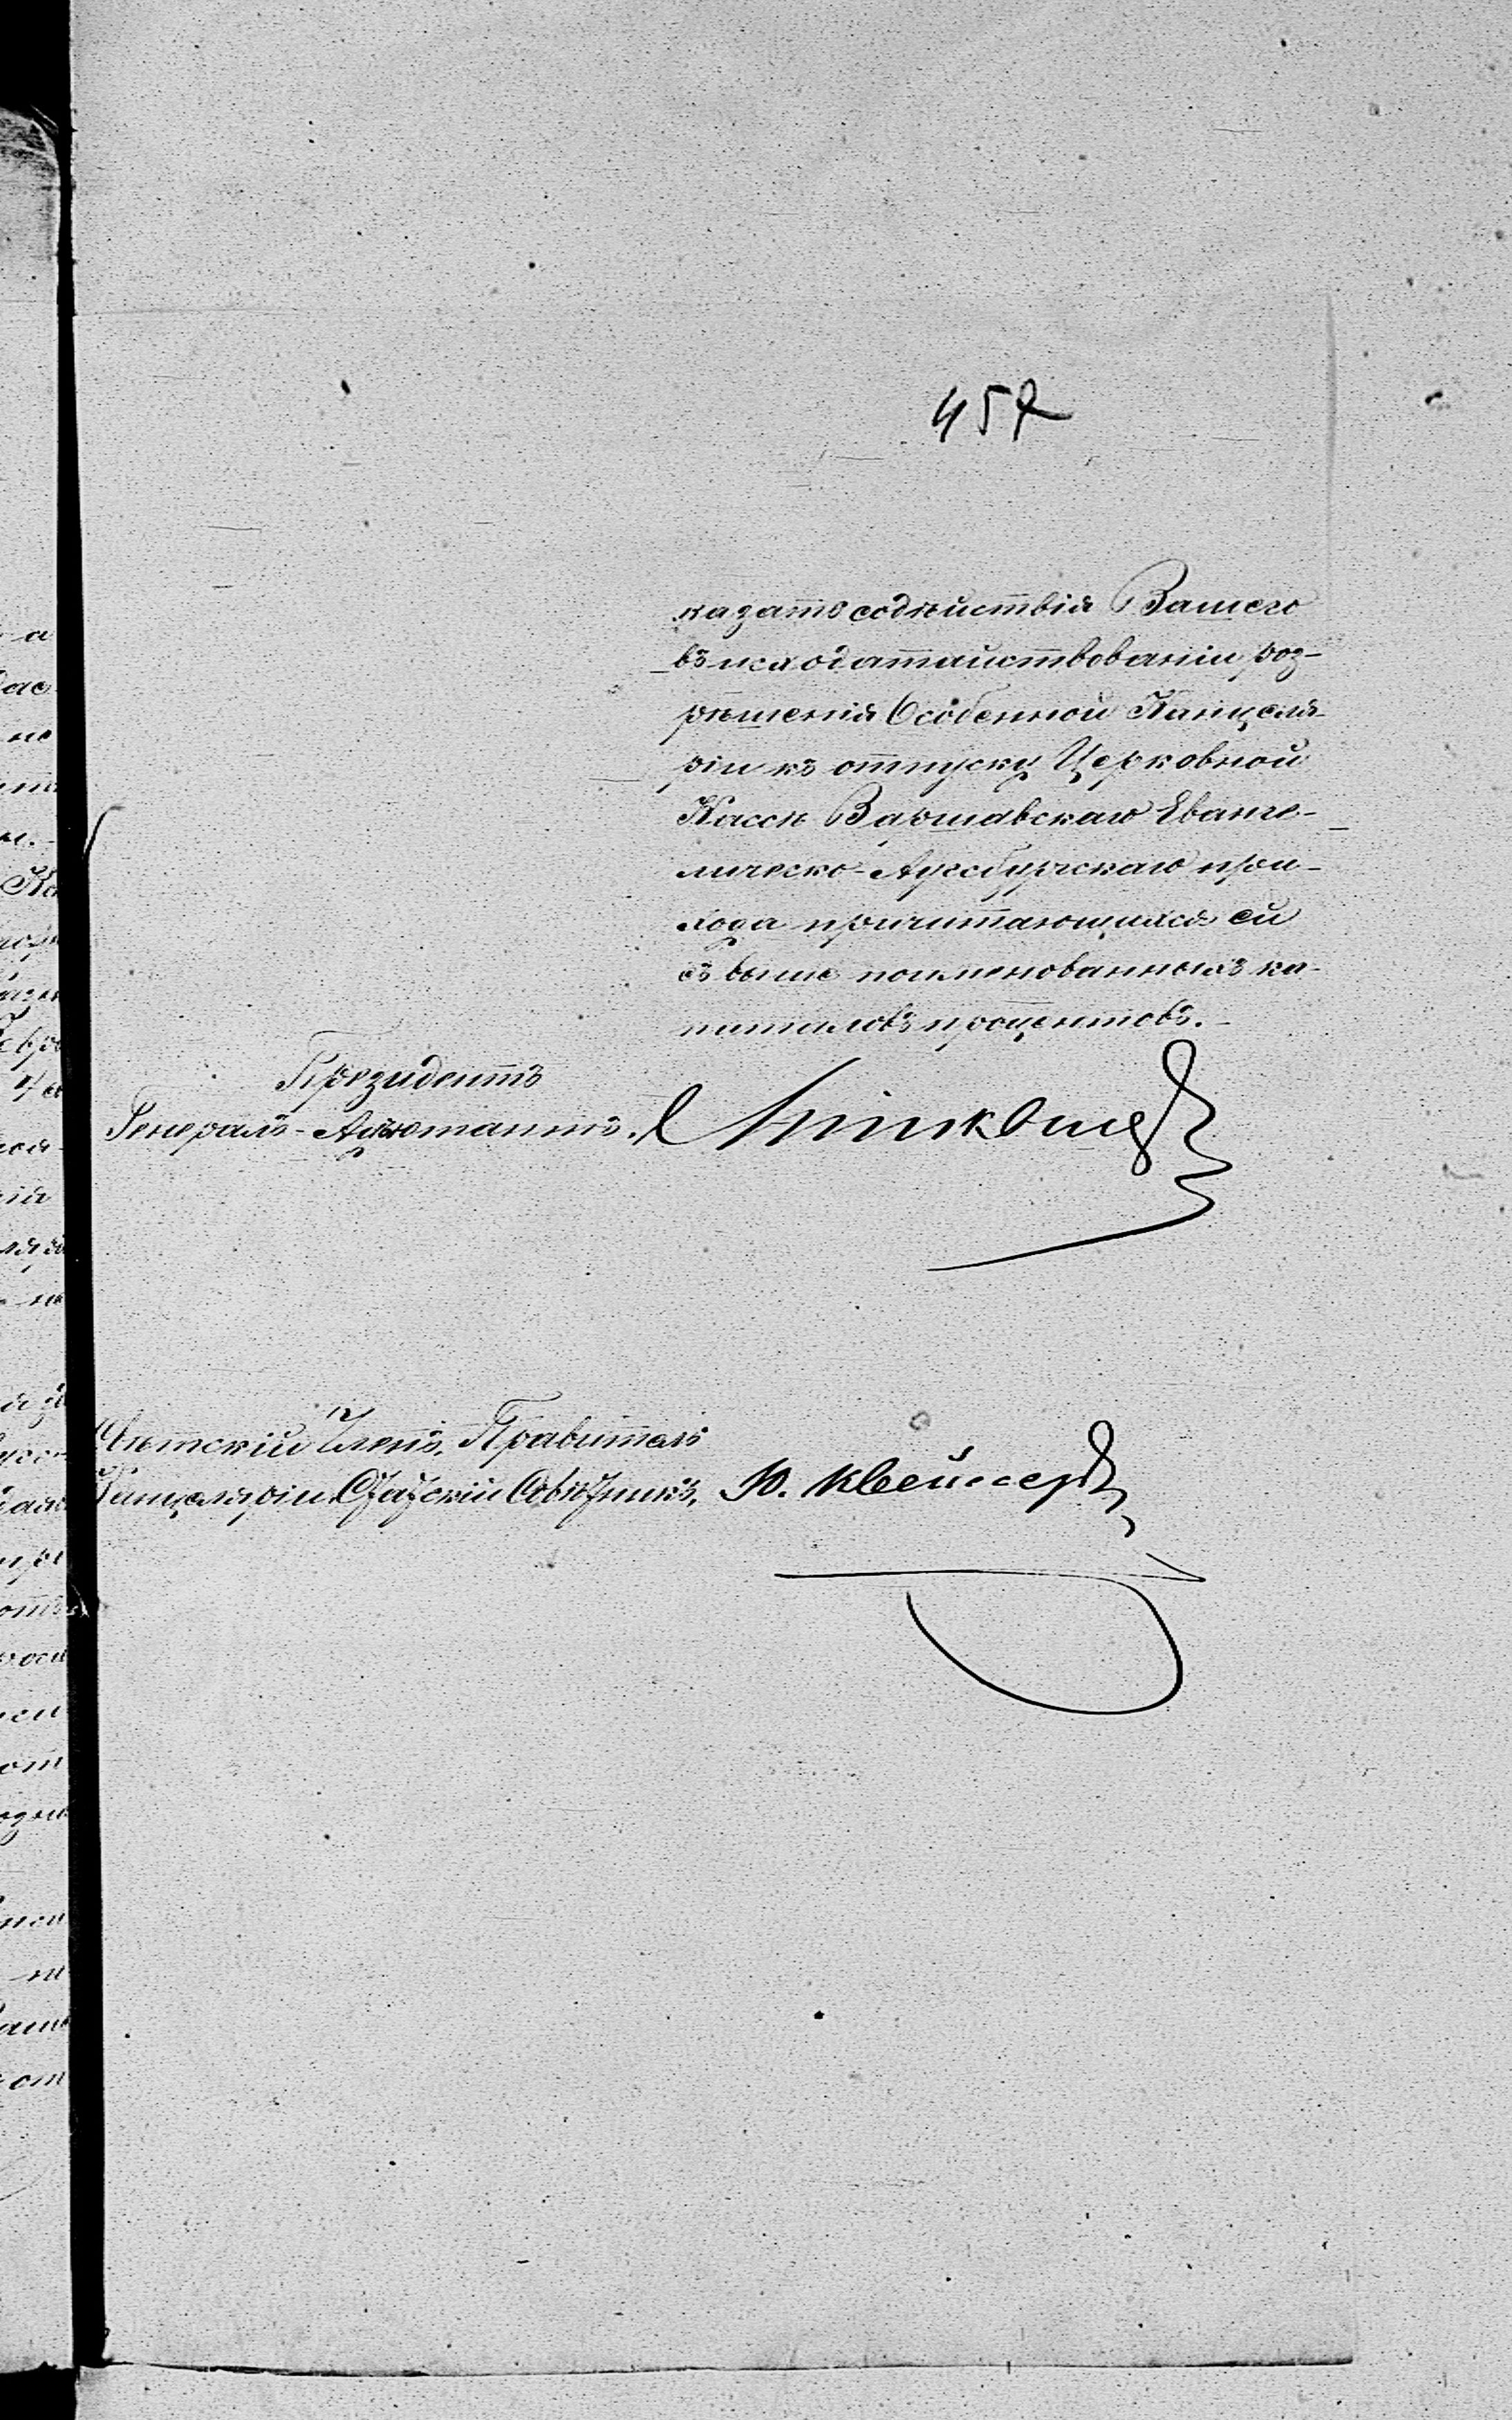 457
казать содѣйствія Вашего
въ исходатайствованіи раз-
рѣшенія Особенной Канцеля-
ріи къ отпуску Церковной
Кассѣ Варшавскаго Еванге-
лическо-Аугсбургскаго при-
хода причитающихся ей
съ выше поименованныхъ ка-
питаловъ процентовъ.
Президентъ
Генералъ-Адъютантъ,
Свѣтскій Членъ, Правитель
Канцеляріи, Статскій Совѣтникъ, Ю. Квейссеръ